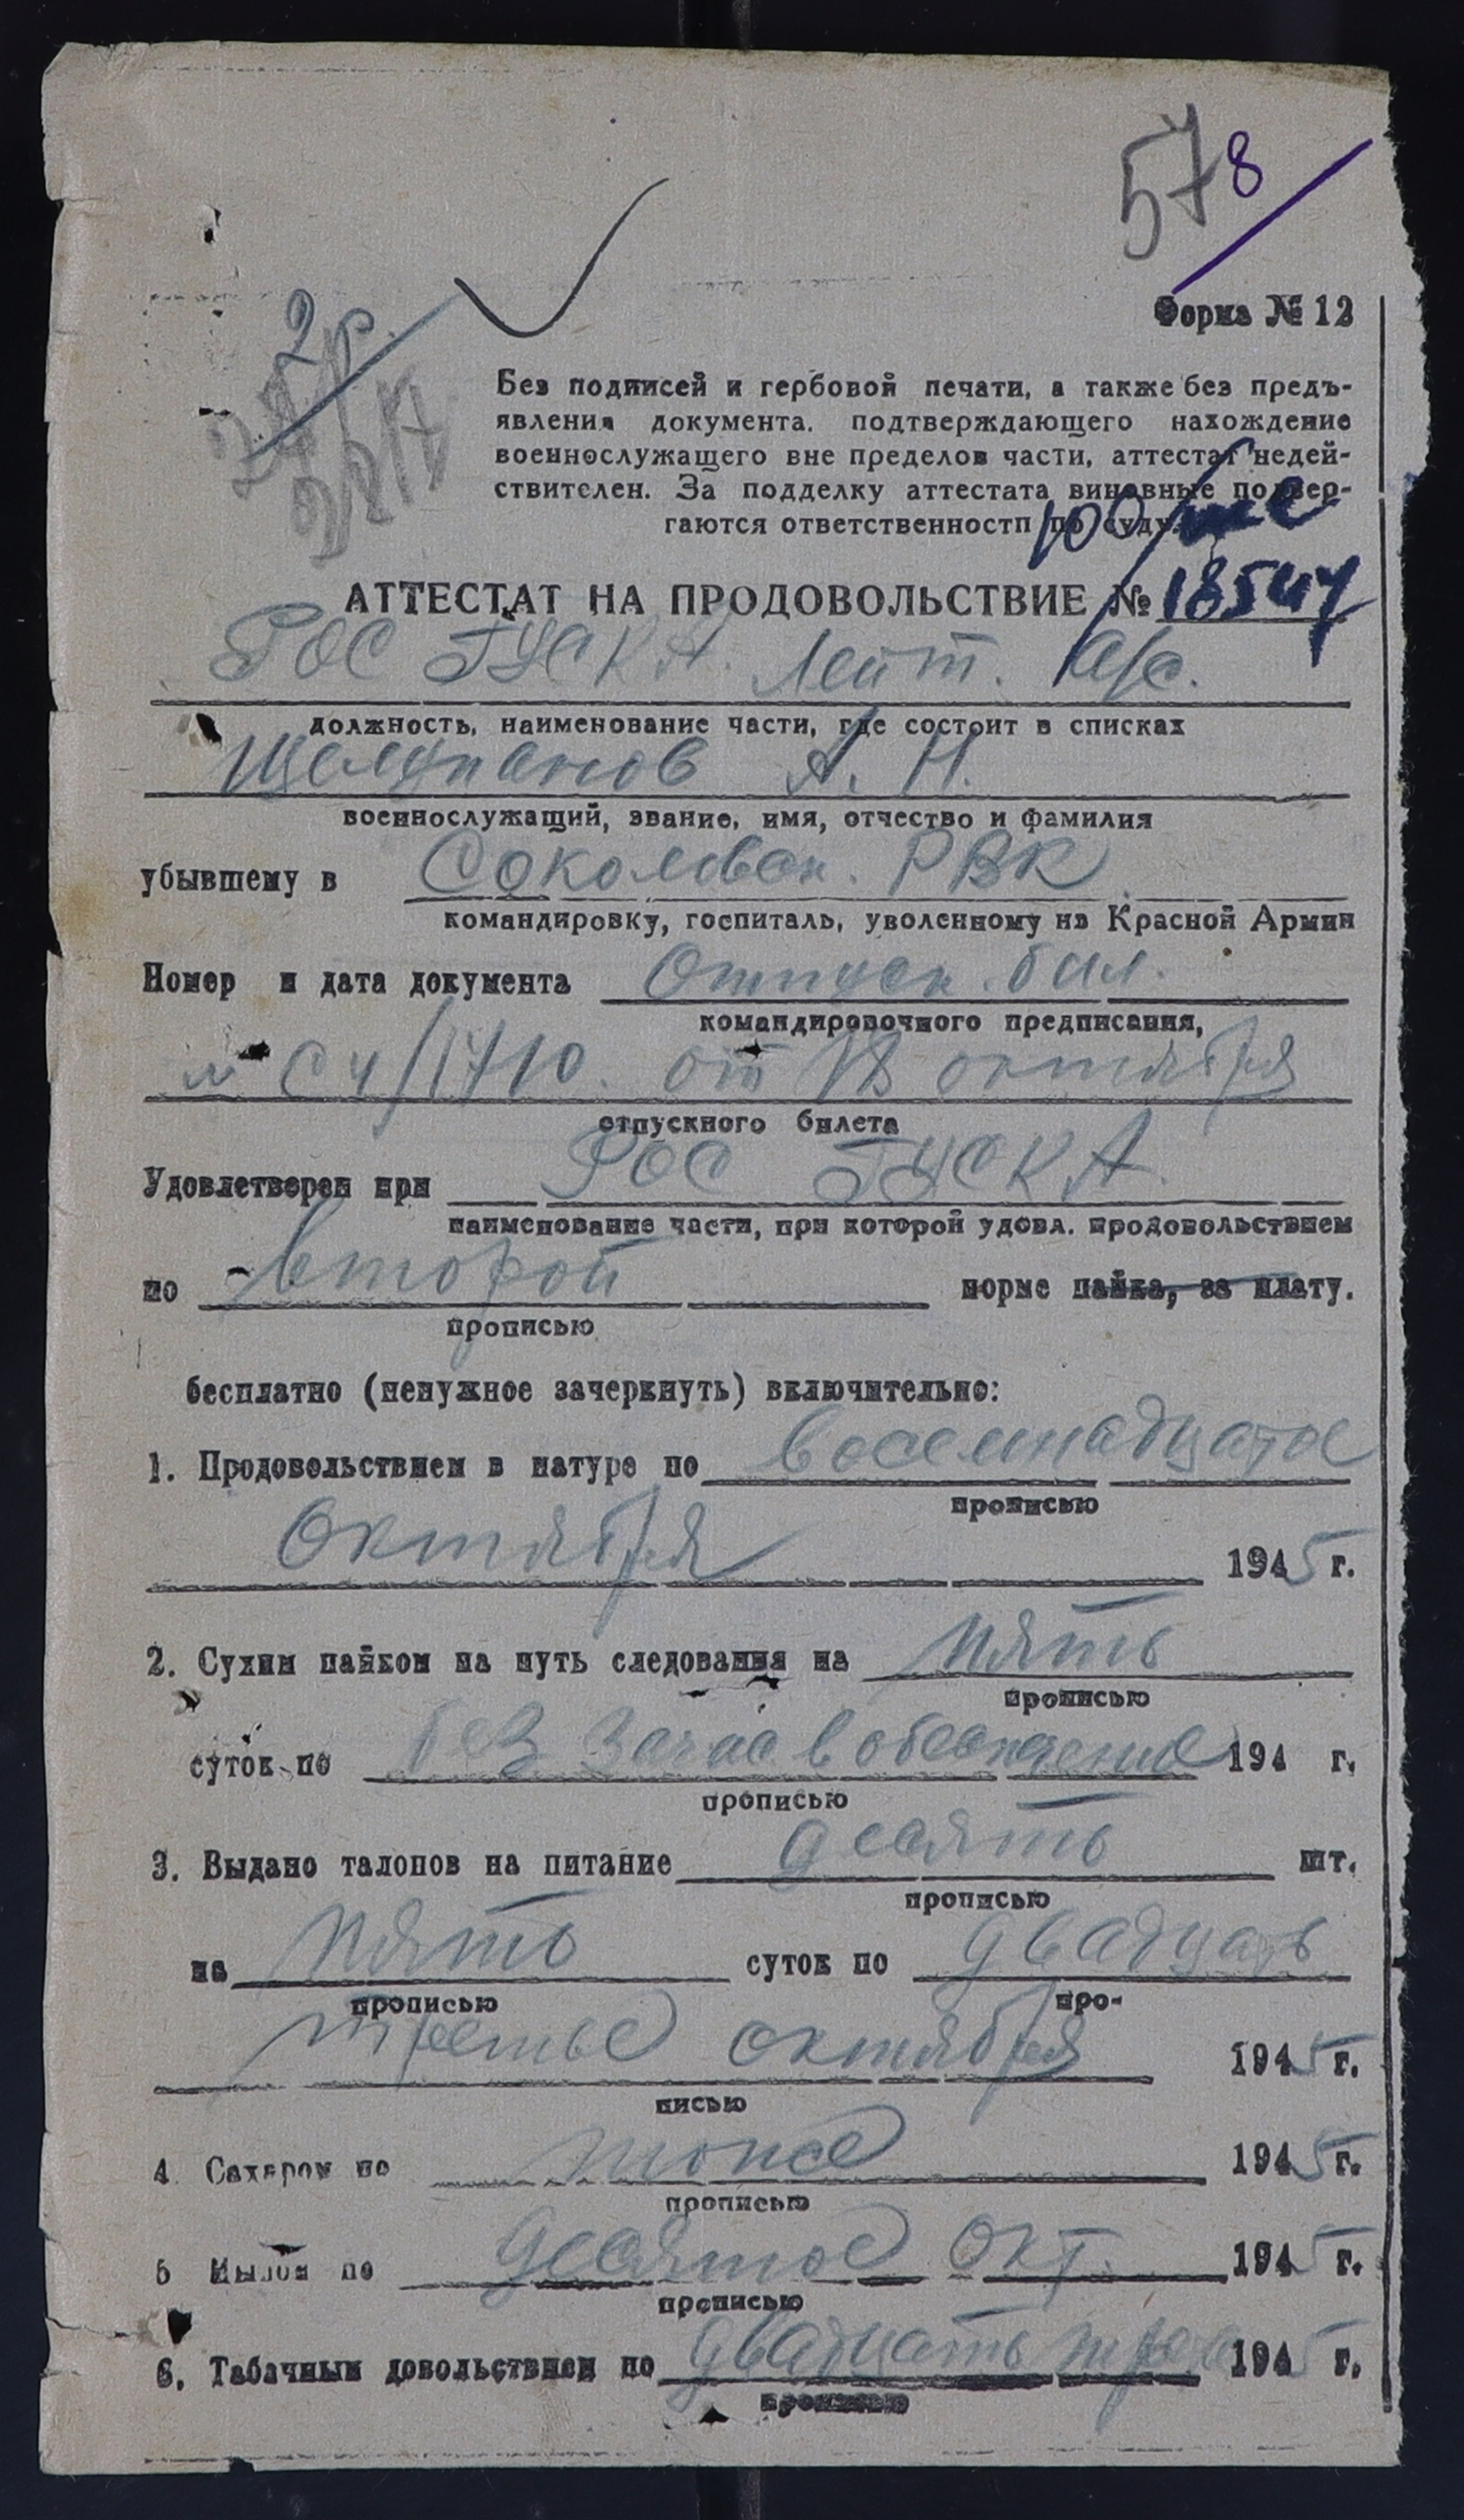 578
Форма № 12
2 р.
Без подписей и гербовой печати, а также без предъ-
явления документа, подтверждающего нахождение
военнослужащего вне пределов части, аттестат недей-
ствителен. За подделку аттестата виновные подвер-
гаются ответственности по суду.
АТТЕСТАТ НА ПРОДОВОЛЬСТВИЕ № 18547
РОС ГУСКА. Лейт. а/с.
должность, наименование части, где состоит в списках
Щелупанов А. Н.
военнослужащий, звание, имя, отчество и фамилия
убывшему в Соколовск. РВК
командировку, госпиталь, уволенному из Красной Армии
Номер и дата документа Отпуск. бил.
командировочного предписания,
№ С4/1710. от 18 октября
отпускного билета
Удовлетворен при РОС ГУСКА
наименование части, при которой удовл. продовольствием
по второй норме пайка, за плату.
прописью
бесплатно (ненужное зачеркнуть) включительно:
1. Продовольствием в натуре по восемнадцатое
прописью
Октября 1945 г.
2. Сухим пайком на путь следования на пять
прописью
суток по без 194 г.
прописью
3. Выдано талонов на питание десять шт.
прописью
на пять суток по двадцать
прописью про-
третье октября 1945 г.
писью
4. Сахаром по тоже 1945 г.
прописью
5 Мылом по десятое окт. 1945 г.
прописью
6. Табачным довольствием по двадцать 1945 г.
прописью